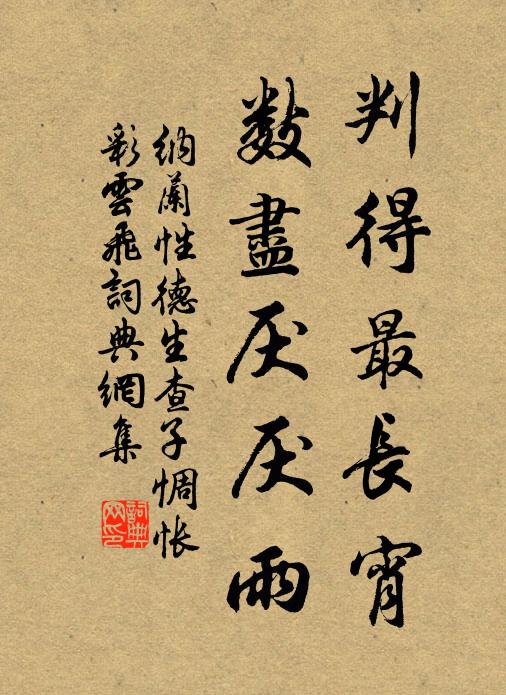 判得最長宵
數盡厌厌雨
納蘭性德生查子惆怅
彩雲飛詞典網集
詞典网印